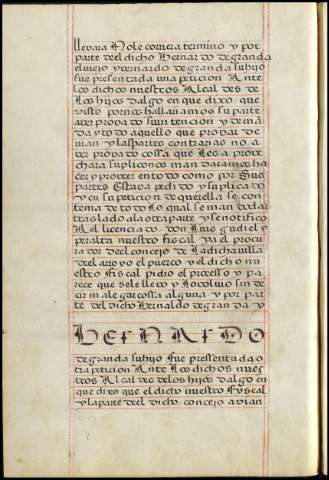 llevara Nole corriera termino y por
parte del dicho Bernardo de granda
el viejo y bernardo de granda su hijo
fue presentada una peticion Ante
los dichos nuestros Alcaldes de
Los hijos dalgo en que dixo que
visto por nos hallariamos su parte
aver probado su intencion y deman
da y todo aquello que probar de
vian y las partes contrarias no a
ver probado cossa que Les a prove
chara suplico nos mandaramos ha
cer y proveer en todo como por Sus
partes Estava pedido y suplicado
y en su peticion de querella se con
tema de todo Lo qual se mando dar
traslado a la otra parte y se notifico
A el licenciado don Luis gudiel y
peralta nuestro fiscal ya el procu
rador del concejo de La dicha villa
del arroyo el puerco y el dicho nu
estro Fiscal pidio el processo y pa
rece que se le llevo y Lo colvio sin de
cir ni alegar cossa alguna y por par
te del dicho Bernaldo de granda y
BERNARDO
de granda su hijo fue presentada o
tra peticion Ante Los dichos nues
tros Alcaldes de los hijos dalgo en
que dixo que el dicho nuestro Fyscal
y la parte del dicho concejo avian